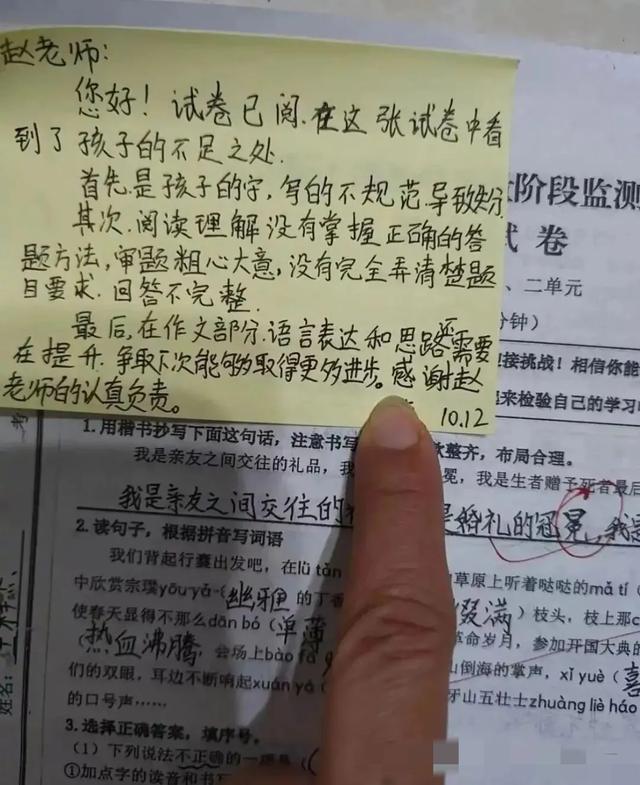 赵老师:
您好! 试卷已阅. 在这张试卷中看
到了孩子的不足之处.
首先.是孩子的字,写的不规范.导致失分
其次.阅读理解没有掌握正确的答
题方法,审题粗心大意,没有完全弄清楚题
目要求.回答不完整.
最后,在作文部分.语言表达和思路需要
在提升.争取下次能够取得更多进步。感谢赵
老师的认真负责。
10.12
阶段监测
试卷
、二单元
分钟)
迎接挑战!相信你能
来检验自己的学习
1.用楷书抄写下面这句话,注意书写 整齐,布局合理。
我是亲友之间交往的礼品,我 冕,我是生者赠予死者最后
我是亲友之间交往的 是婚礼的冠冕,我是
2.读句子,根据拼音写词语
我们背起行囊出发吧,在lǜ tǎn 草原上听着哒哒的mǎ tí(
中欣赏宗璞yōu yǎ(幽雅)的丁香 缀满)枝头,枝上那c
使春天显得不那么dān bó(单薄 革命岁月,参加开国大典的
(热血沸腾,会场上bào fā 山倒海的掌声,xǐ yuè(喜
们的双眼,耳边不断响起xuān yá( 牙山五壮士zhuàng liè háo
的口号声……
姓名:
3.选择正确答案,填序号。
(1)下列说法不正确的一项是(
①加点字的读音和书写